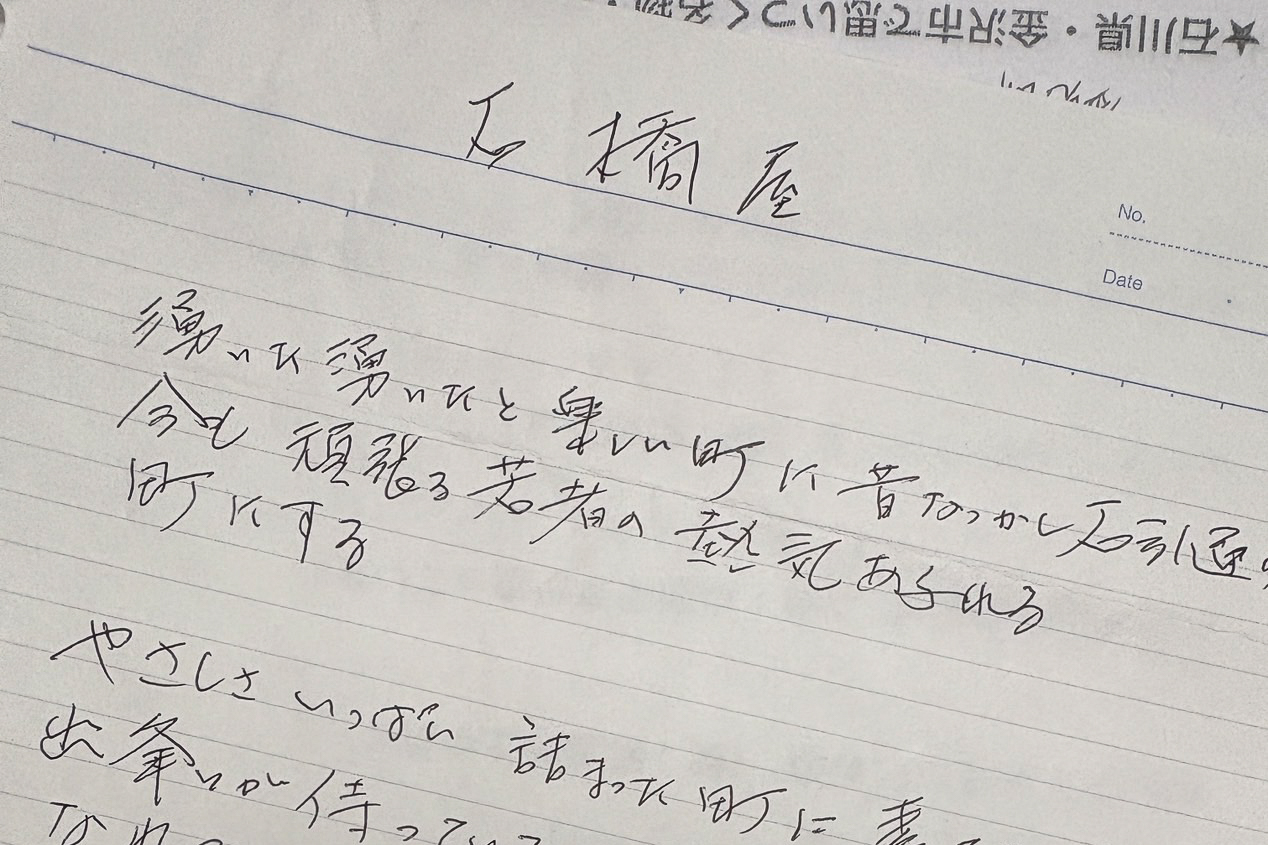 ★石川県・金沢市で思いつく名
石橋屋
No.
Date
湧いた湧いたと楽しい町に昔なつかし石引通の
今も頑張る若者の熱気あふれる
町にする
やさしさいっぱい詰まった町に
出逢いが待っている